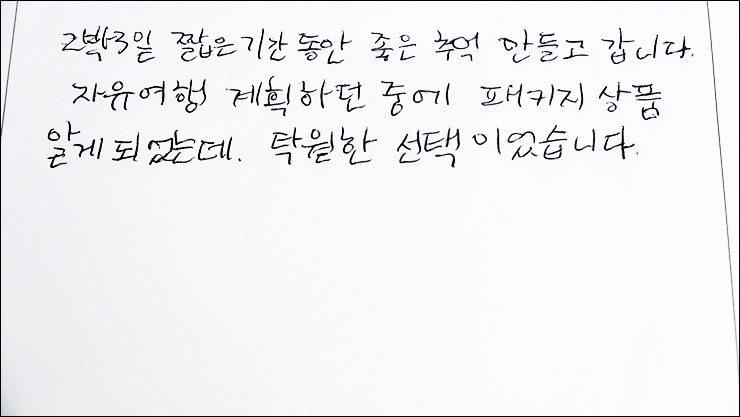 2박3일 짧은기간 동안 좋은 추억 만들고 갑니다.
자유여행 계획하던 중에 패키지 상품
알게되었는데. 탁월한 선택이었습니다.